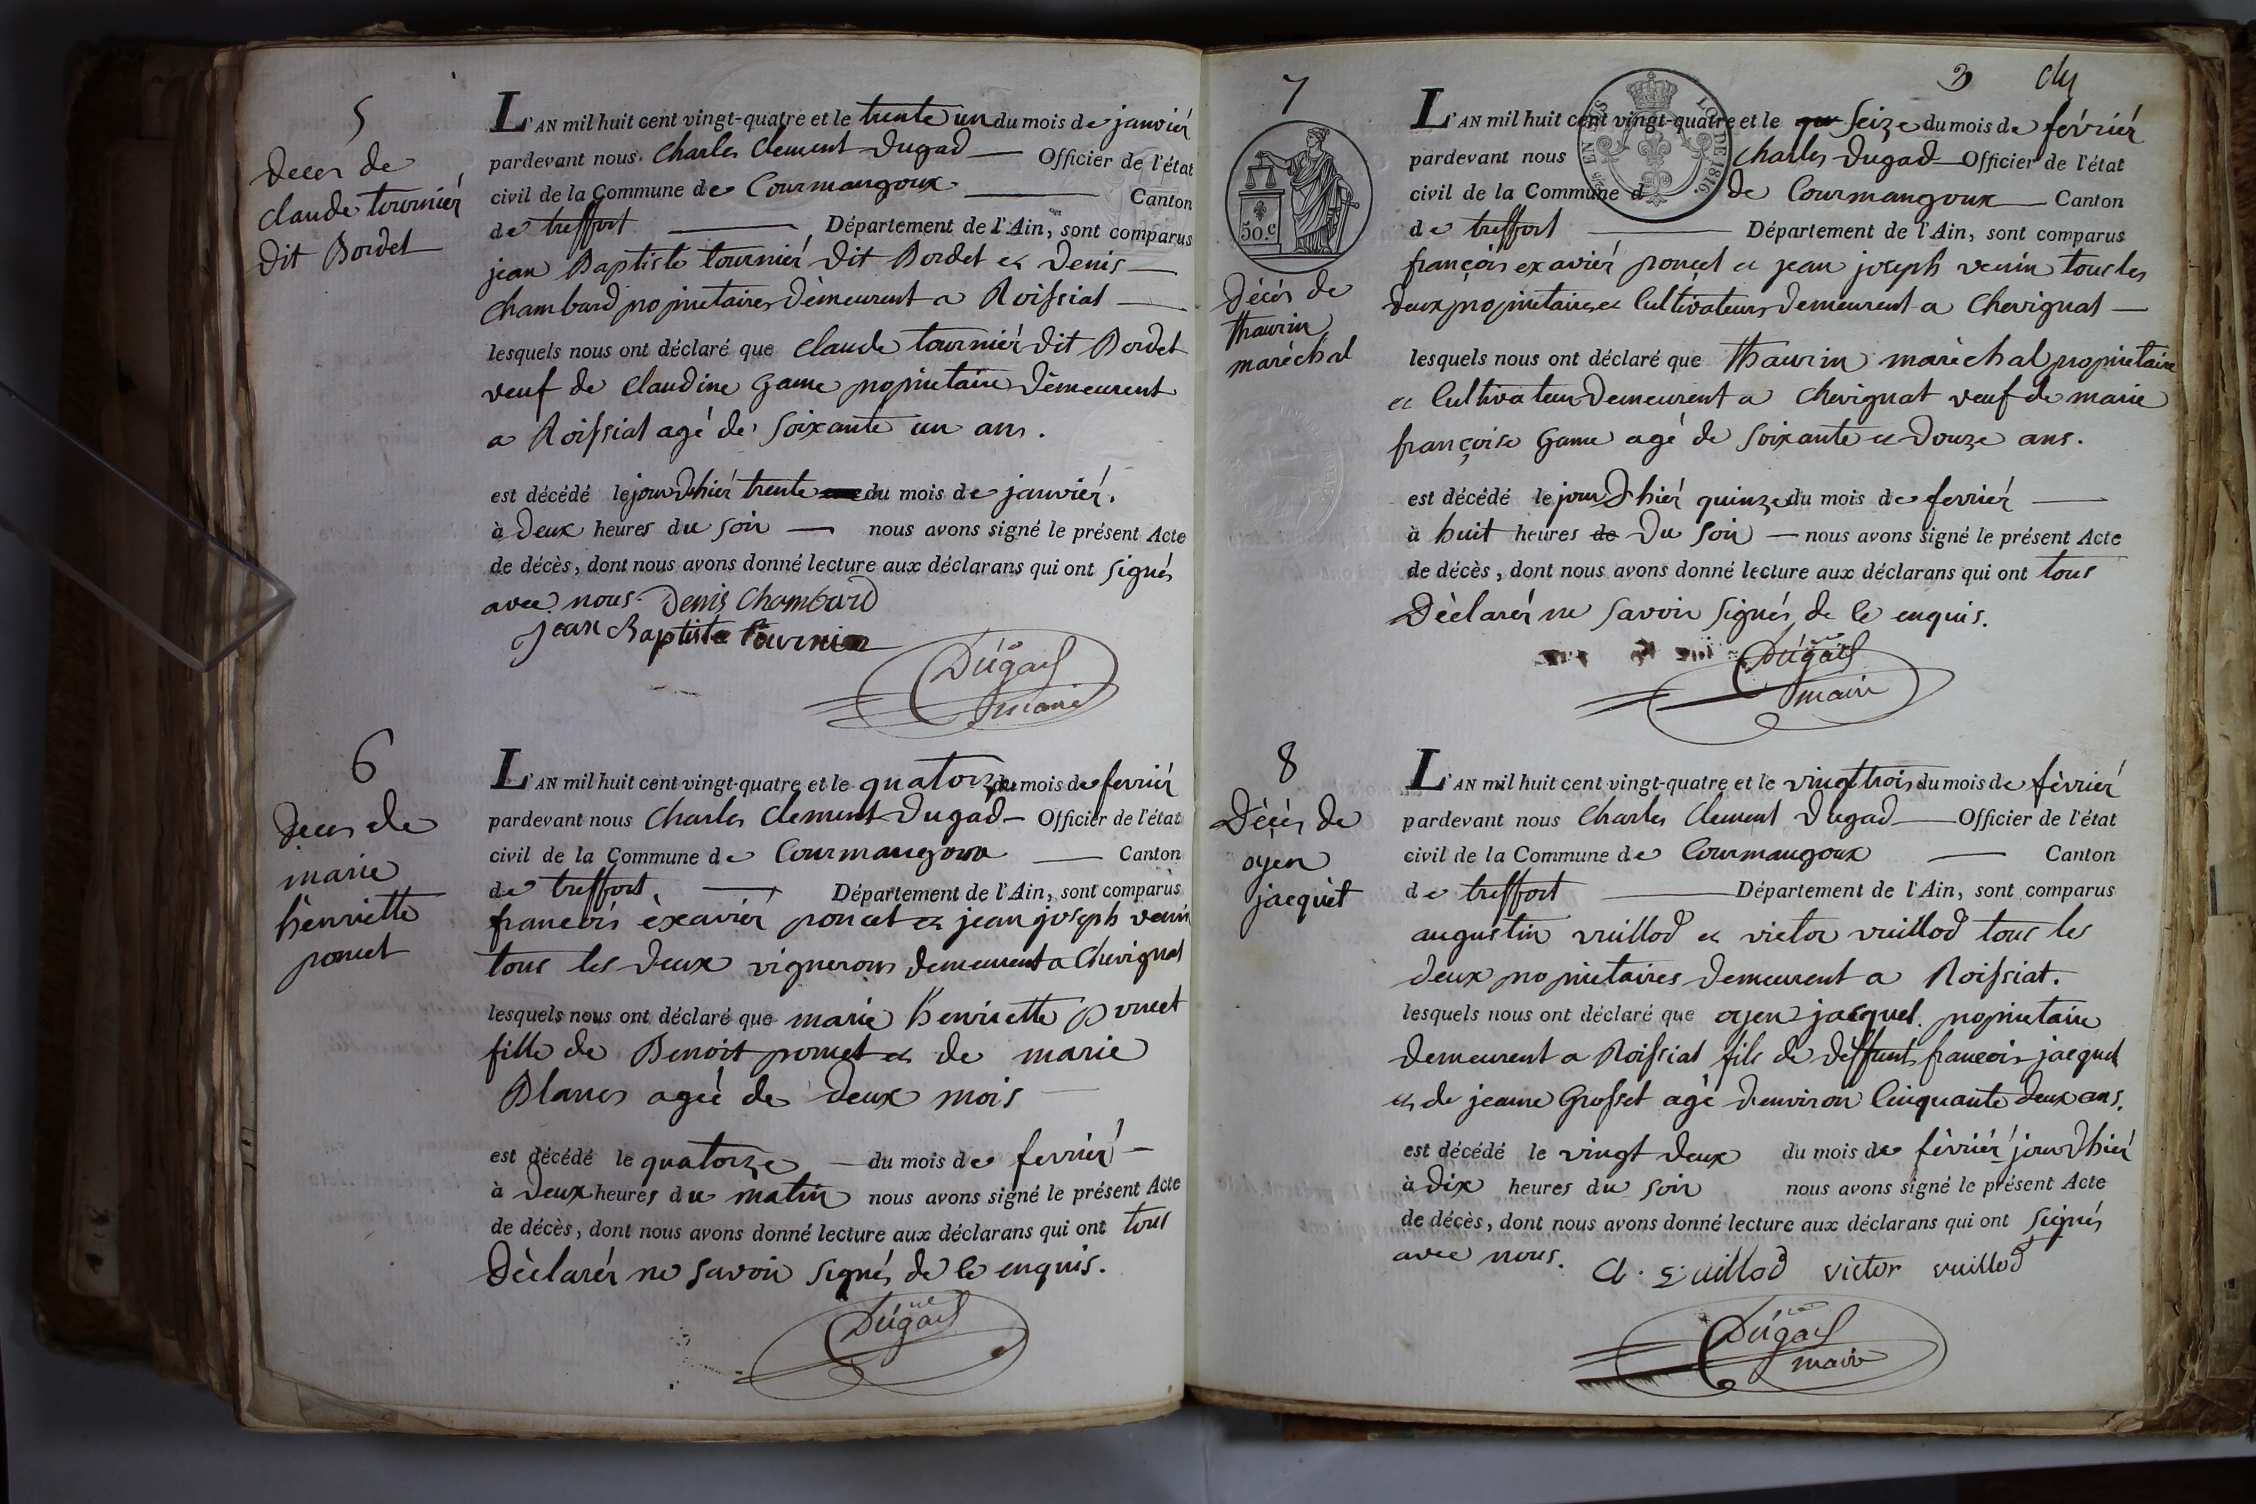 5
Deces de
claude tournier
dit Bordet
L'AN mil huit cent vingt-quatre et le trente un du mois de janvier
pardevant nous Charles Clement Dugad — Officier de l'état
civil de la Commune de Courmangoux — Canton
de treffort — Département de l'Ain, sont comparus
jean Baptiste tournier dit Bordet et Denis —
Chambard propriétaires demeurent a Roissiat —
lesquels nous ont déclaré que Claude tournier dit Bordet
veuf de Claudine Game propriétaire demeurent
a Roissiat agé de soixante un ans.
est décédé le jour d'hiér trente du mois de janviér.
à Deux heures du soir — nous avons signé le présent Acte
de décès, dont nous avons donné lecture aux déclarans qui ont signés
avec nous. Denis Chambard
jean Baptiste tournier
Dugad
maire
6
Deces de
marie
hènriette
poncet
L'AN mil huit cent vingt-quatre et le quatorze du mois de fevriér
pardevant nous Charles Clement Dugad — Officier de l'état
civil de la Commune de Courmangoux — Canton
de treffort. — Département de l'Ain, sont comparus
francois èxaviér poncet et jean joseph venin
tous les deux vignerons demeurent a Chevignat
lesquels nous ont déclaré que marie henriette poncet
fille de Benoit poncet et de marie
Blanc agée de deux mois —
est décédé le quatorze — du mois de fevriér —
à Deux heures du matin nous avons signé le présent Acte
de décès, dont nous avons donné lecture aux déclarans qui ont tous
Dèclarér ne savoir signés de ce enquis.
Dugad
3
7
50.c
EN SUS
LOI DE 1816.
Décés de
thaurin
maréchal
L'AN mil huit cent vingt-quatre et le seize du mois de février
pardevant nous Charles Dugad — Officier de l'état
civil de la Commune d de Courmangoux — Canton
de treffort — Département de l'Ain, sont comparus
françois exaviér poncet et jean joseph venin tous les
deux propriétaires et Cultivateurs demeurent a Chevignat —
lesquels nous ont déclaré que thaurin maréchal propriétaire
et Cultivateur demeurent a Chevignat veuf de marie
françoise Game agé de soixante et douze ans.
est décédé le jour d'hiér quinze du mois de fevriér —
à huit heures de Du soir — nous avons signé le présent Acte
de décès, dont nous avons donné lecture aux déclarans qui ont tous
Dèclarér ne savoir signés de ce enquis.
Dugad
maire
8
Dècès de
oyen
jacquet
L'AN mil huit cent vingt-quatre et le vingt trois du mois de fèvriér
pardevant nous Charles Clement Dugad — Officier de l'état
civil de la Commune de Courmangoux — Canton
de treffort — Département de l'Ain, sont comparus
augustin vuillod et victor vuillod tous les
deux propriétaires demeurent a Roissiat.
lesquels nous ont déclaré que oyen jacquet propriétaire
demeurent a Roissiat fils de deffunt francois jacquet
et de jeanne Grosset agé d'environ Cinquante deux ans.
est décédé le vingt deux du mois de fèvriér jour d'hiér
à dix heures du soir nous avons signé le présent Acte
de décès, dont nous avons donné lecture aux déclarans qui ont signés
avec nous. A. vuillod victor vuillod
Dugad
maire